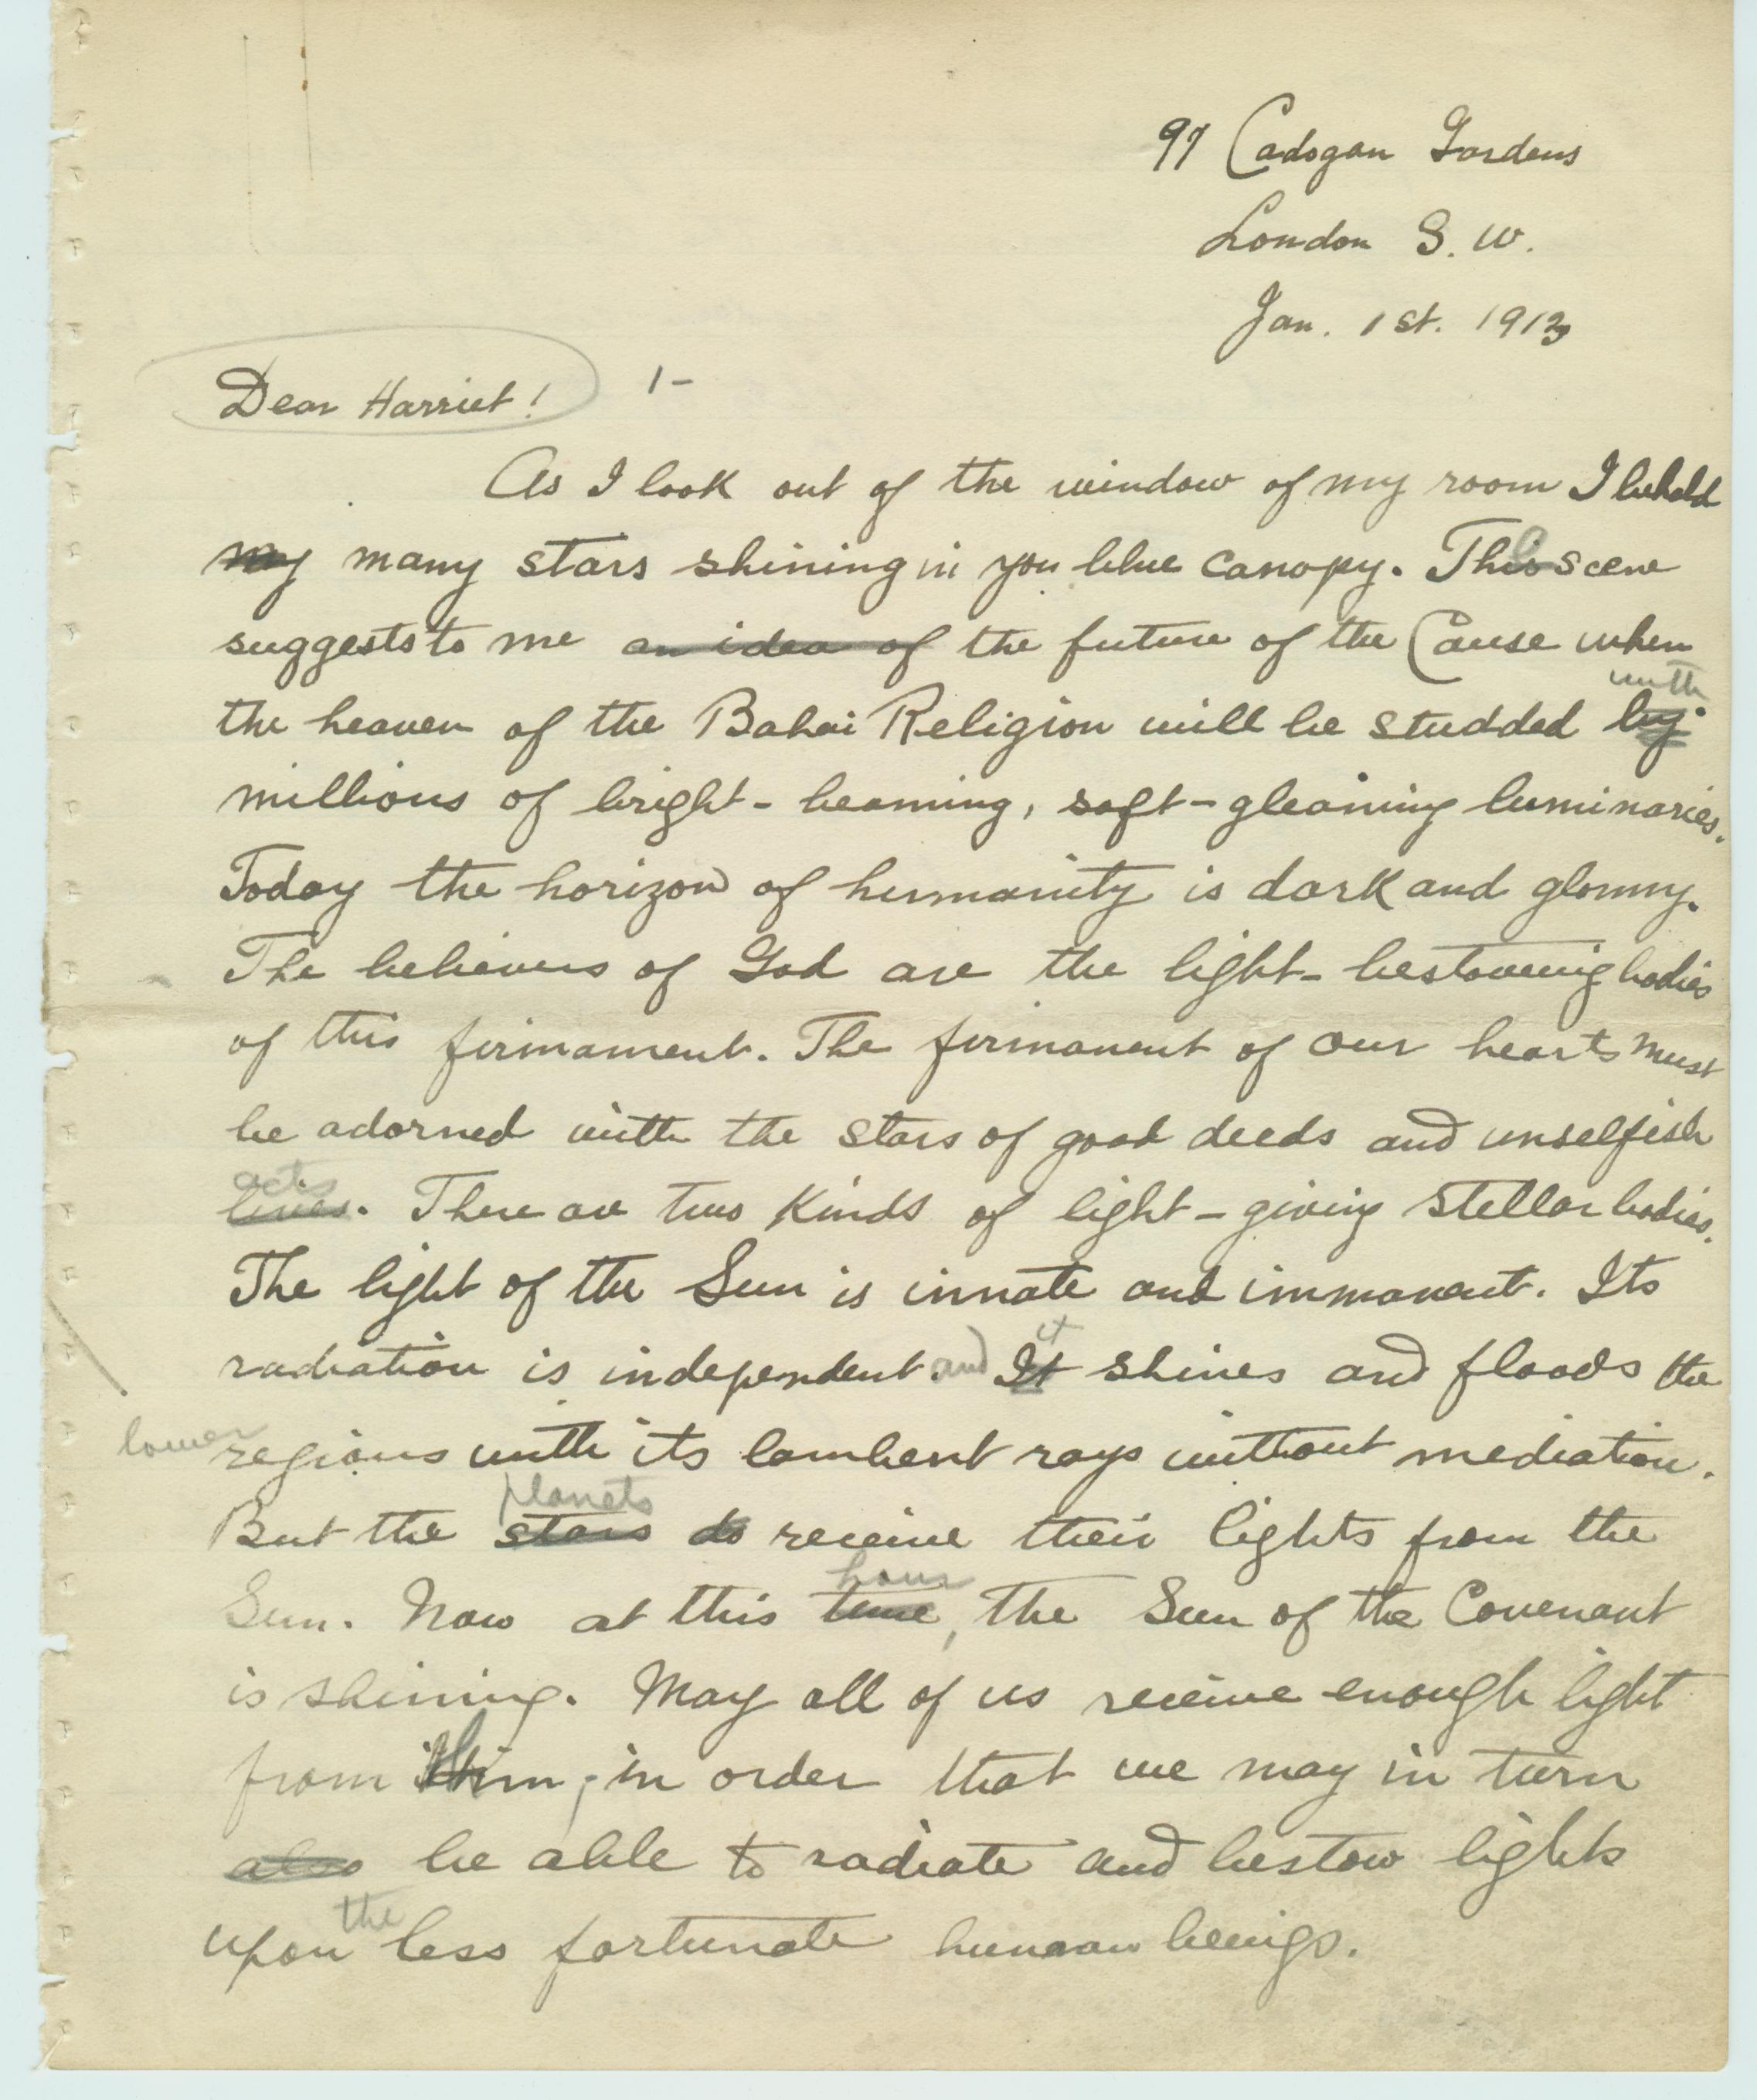 97 Cadogan Gardens
London S. W.
Jan. 1st. 1913
Dear Harriet! 1-
As I look out of the window of my room I behold
my many stars shining in yon blue canopy. This scene
suggests to me an idea of the future of the Cause when
with
the heaven of the Bahai Religion will be studded by
millions of bright-beaming, soft-gleaming luminaries.
Today the horizon of humanity is dark and gloomy.
The believers of God are the light-bestowing bodies
of this firmament. The firmament of our hearts must
be adorned with the stars of good deeds and unselfish
acts
lives. There are two kinds of light-giving stellar bodies.
The light of the Sun is innate and immanent. Its
it
radiation is independent. and It shines and floods the
lower regions with its lambent rays without mediation.
planets
But the stars do receive their lights from the
hour
Sun. Now at this time, the Sun of the Covenant
is shining. May all of us receive enough light
from Him, in order that we may in turn
also be able to radiate and bestow lights
the
upon less fortunate human beings.